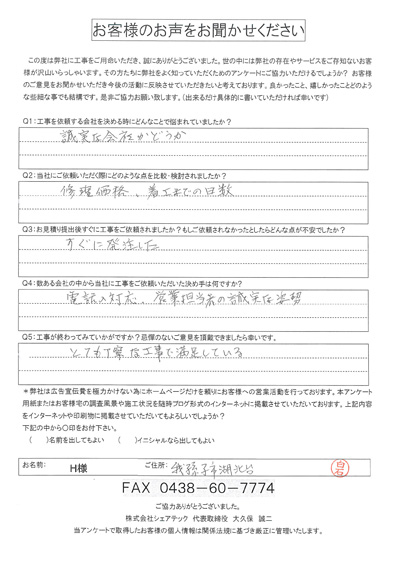 お客様のお声をお聞かせください
この度は弊社に工事をご用命いただき、誠にありがとうございました。世の中には弊社の存在やサービスをご存知ないお客
様が沢山いらっしゃいます。その方たちに弊社をよく知っていただくためのアンケートにご協力いただけるでしょうか? お客様
のご意見をお聞かせいただき今後の活動に反映させていただいたいと考えております。良かったこと、嬉しかったことどのよう
な些細な事でも結構です。是非ご協力お願い致します。(出来るだけ具体的に書いていただければ幸いです)
Q1:工事を依頼する会社を決める時にどんなことで悩まれていましたか?
誠実な会社かどうか
Q2:当社にご依頼いただく際にどのような点を比較・検討されましたか?
修理価格、着工までの日数
Q3:お見積り提出後すぐに工事をご依頼されましたか?もしご依頼されなかったとしたらどんな点が不安でしたか?
すぐに発注した
Q4:数ある会社の中から当社に工事をご依頼いただいた決め手は何ですか?
電話の対応、営業担当者の誠実な姿勢
Q5:工事が終わってみていかがですか?忌憚のないご意見を頂戴できましたら幸いです。
とても丁寧な工事で満足している
*弊社は広告宣伝費を極力かけない為にホームページだけを頼りにお客様への営業活動を行っております。本アンケート
用紙またはお客様宅の調査風景や施工状況を随時ブログ形式のインターネットに掲載させていただいております。上記内容
をインターネットや印刷物に掲載させていただいてもよろしいでしょうか?
下記の中から○印をお付け下さい。
( )名前を出してもよい ( )イニシャルなら出してもよい
お名前: H様 ご住所: 我孫子市湖北台 白石
FAX 0438-60-7774
ご協力ありがとうございました。
株式会社シェアテック 代表取締役 大久保 誠二
当アンケートで取得したお客様の個人情報は関係法規に基づき厳正に管理いたします。